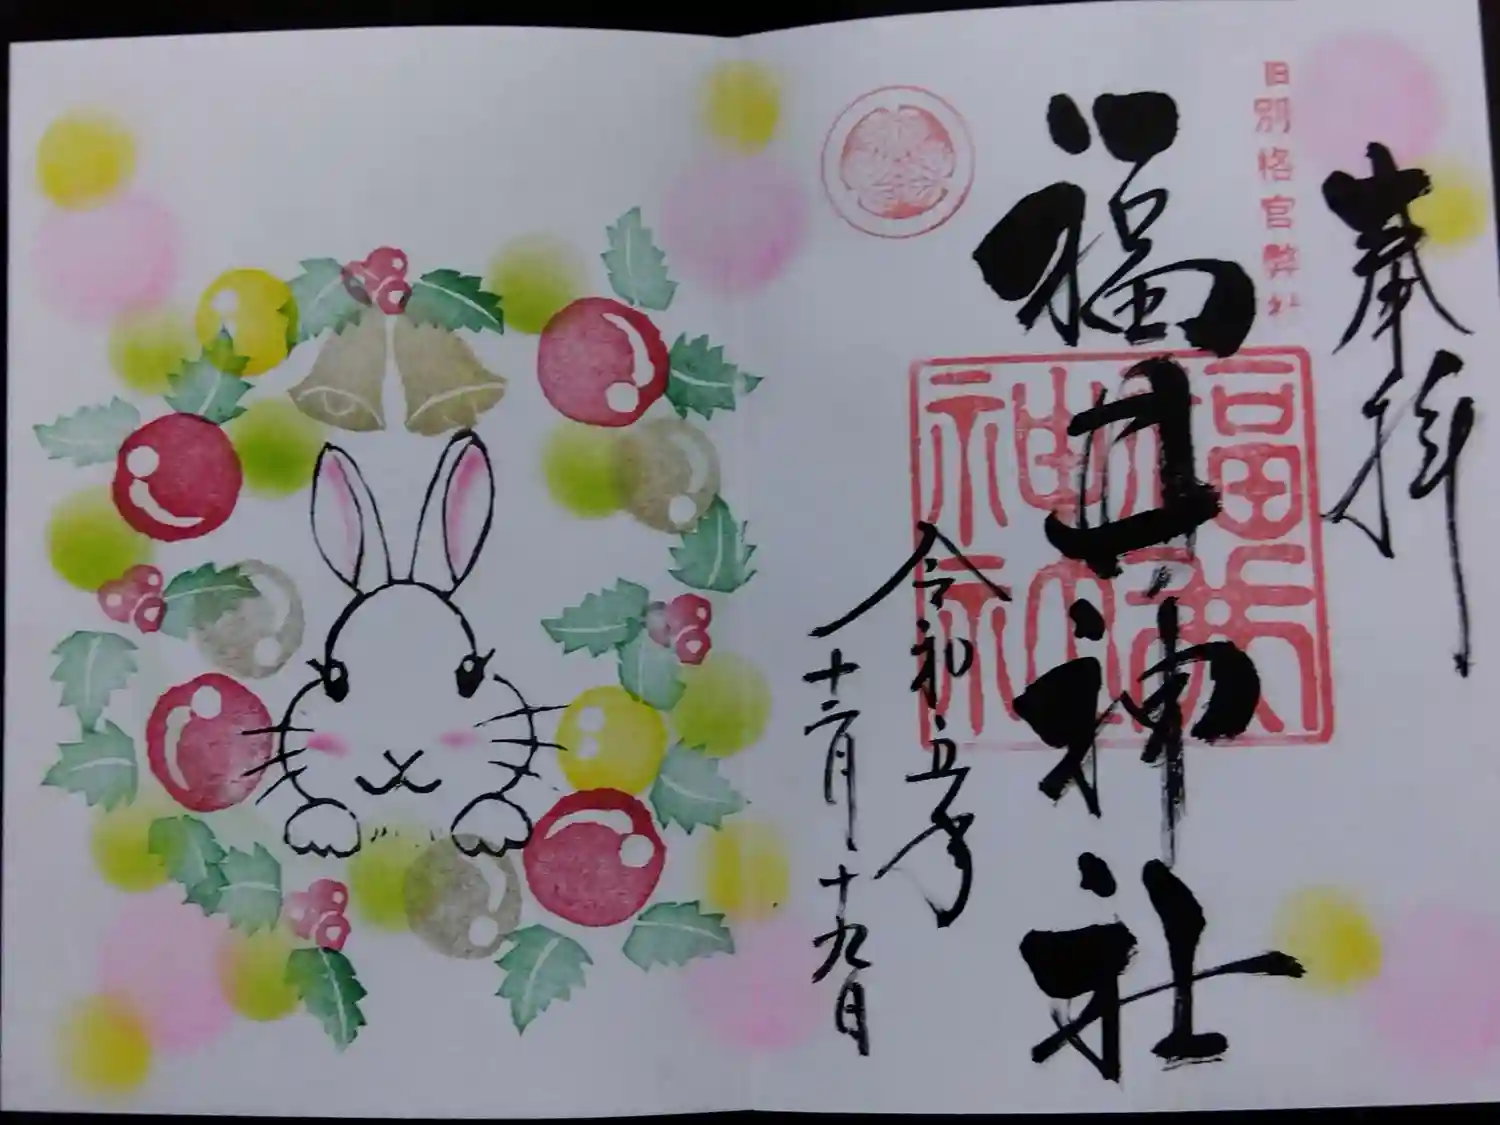 奉拝
旧別格官弊社
福井神社
令和五年
十二月十九日